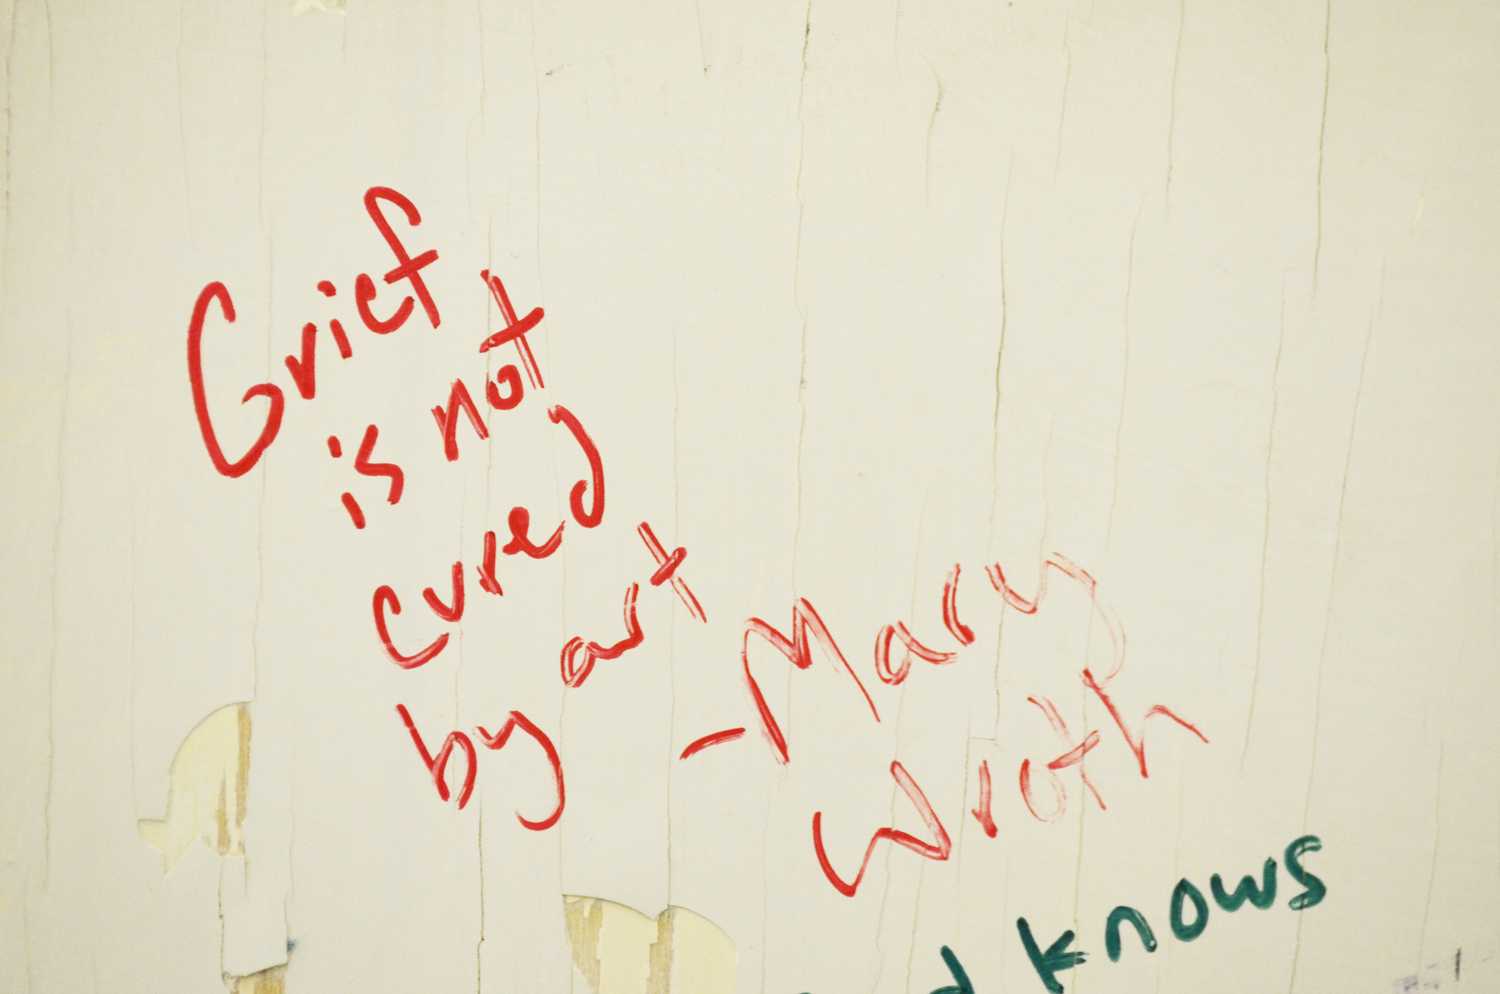 Grief
is not
cured
by art
-Mary
Wroth
knows